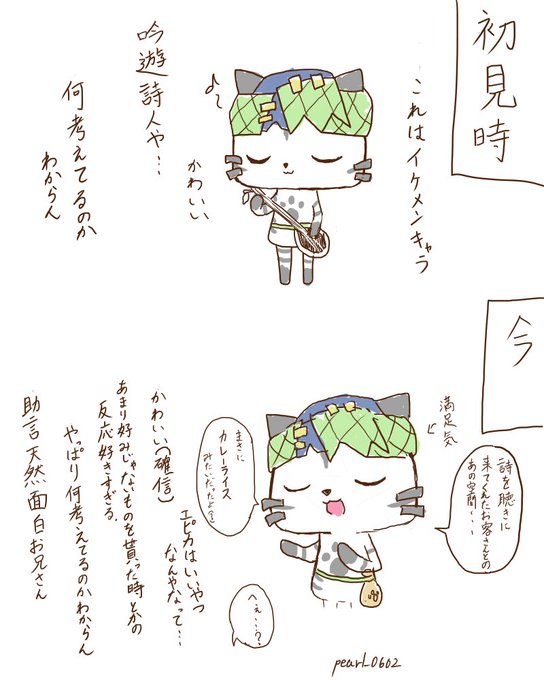 初見時
これはイケメンキャラ
♪〜
かわいい
吟遊詩人や…
何考えてるのか
わからん
今
詩を聴きに
来てくれたお客さんとの
あの空間…
満足気
まさに
カレーライス
みたいだったよなと
へぇ…？
エピカはいいやつ
なんやなって…
かわいい(確信)
あまり好みじゃないものを貰った時とかの
反応好きすぎる
やっぱり何考えてるのかわからん
助言天然面白お兄さん
pearl_0602